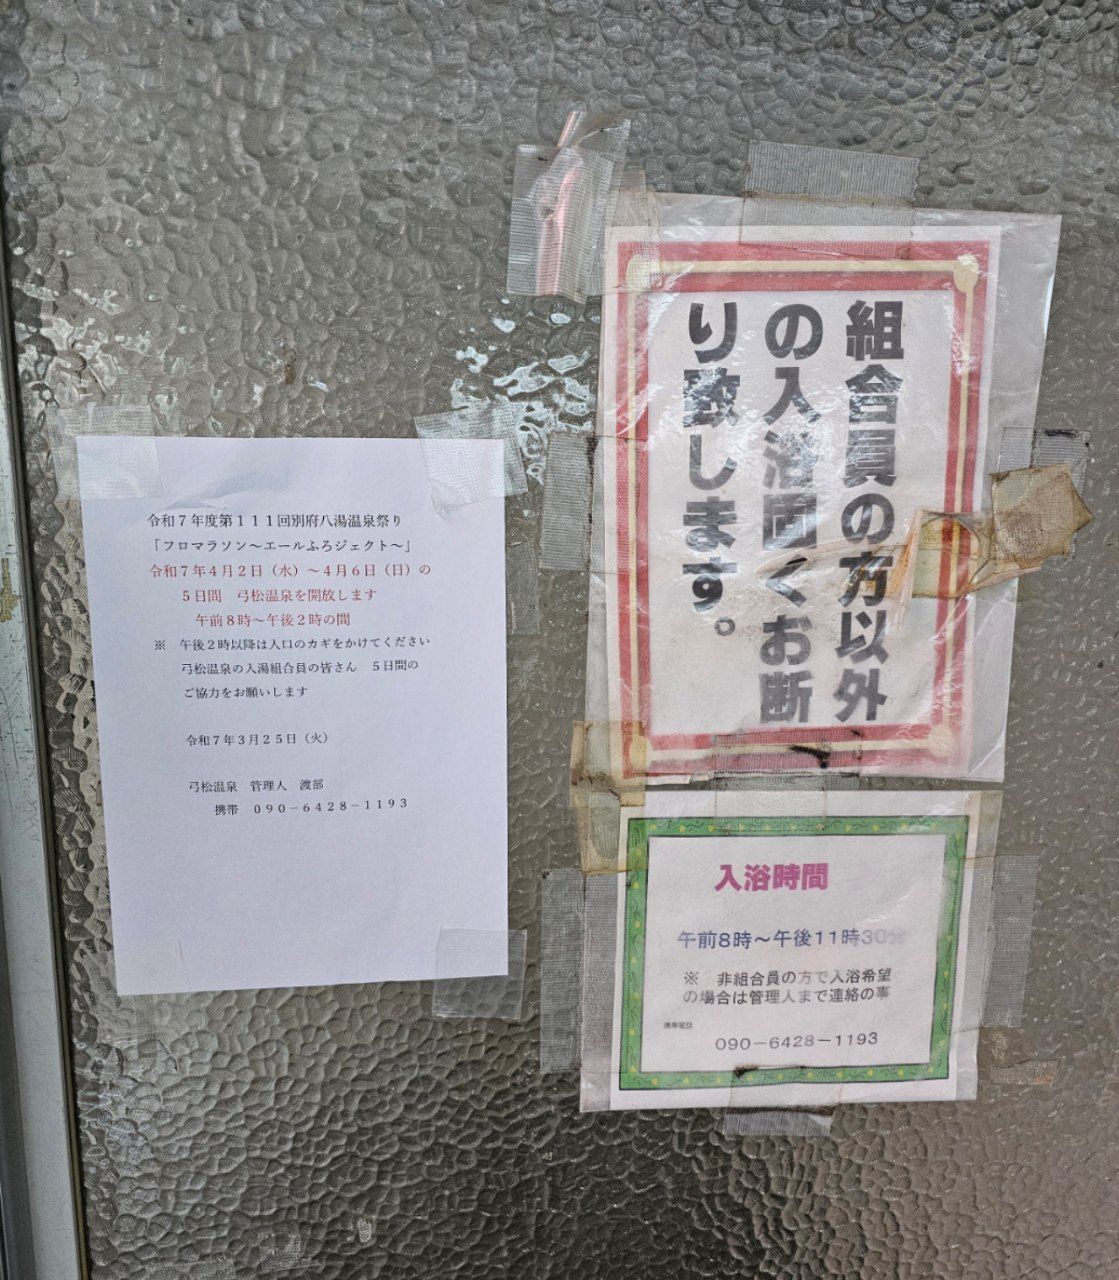 令和７年度第１１１回別府八湯温泉祭り
「フロマラソン～エールふろジェクト～」
令和７年４月２日（水）～４月６日（日）の
５日間　弓松温泉を開放します
午前８時～午後２時の間
※　午後２時以降は入口のカギをかけてください
弓松温泉の入湯組合員の皆さん　５日間の
ご協力をお願いします
令和７年３月２５日（火）
弓松温泉　管理人　渡部
携帯　０９０－６４２８－１１９３
組合員の方以外
の入浴固くお断
り致します。
入浴時間
午前8時～午後11時30分
※　非組合員の方で入浴希望
の場合は管理人まで連絡の事
携帯電話
090－6428－1193